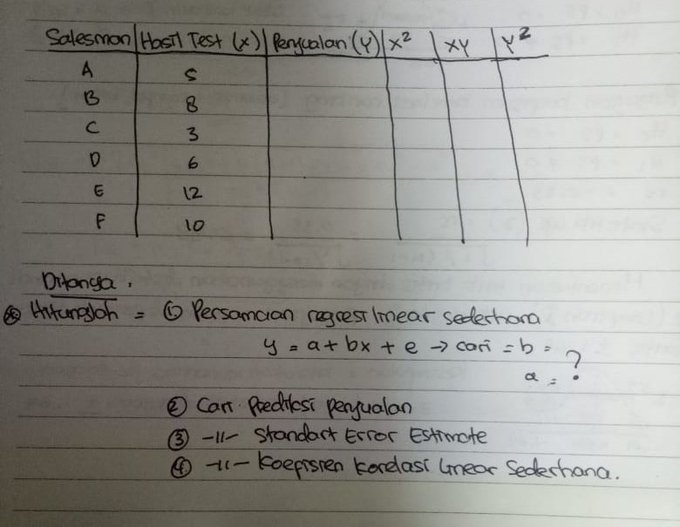 Salesman Hasil Test (x) Penjualan (Y) X² XY Y²
A 5
B 8
C 3
D 6
E 12
F 10
Ditanya.
Hitunglah = ① Persamaan regresi linear sederhana
y = a + bx + e → cari = b =
a = ?
② Cari Prediksi penjualan
③ -11- Standart Error Estimate
④ -11- Koepisien Korelasi Linear Sederhana.